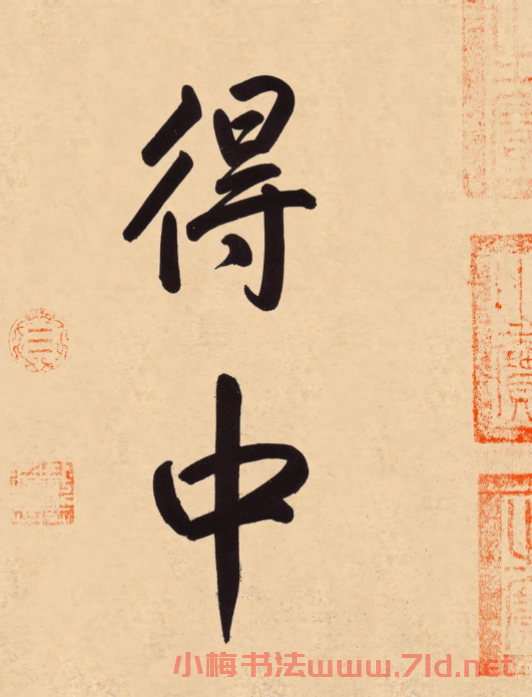 得中
小梅书法www.7ld.net